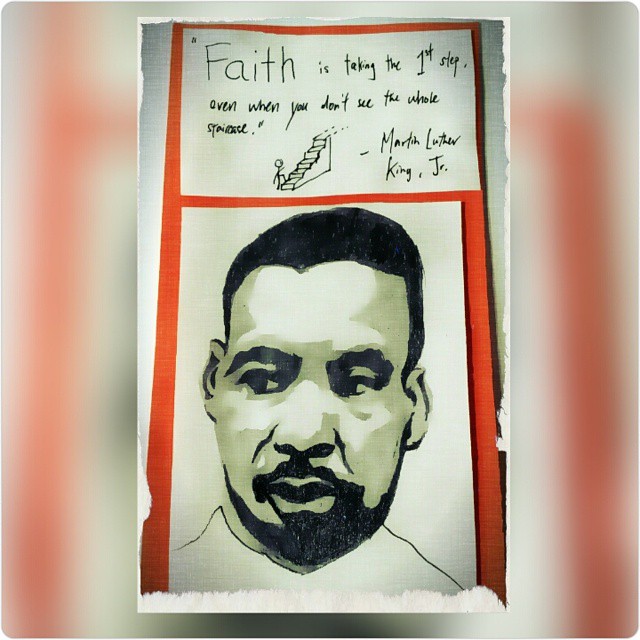 "Faith is taking the 1st step,
even when you don't see the whole
staircase."
- Martin Luther
King, Jr.